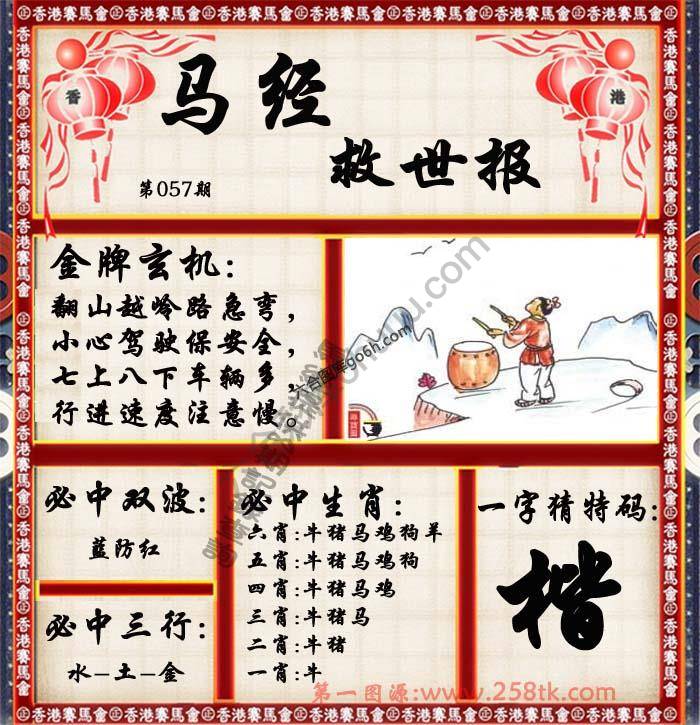 香
港
马经
救世报
第057期
金牌玄机:
翻山越岭路急弯,
小心驾驶保安全,
七上八下车辆多,
行进速度注意慢。
六合图库go6h.com
必中双波:
蓝防红
必中三行:
水-土-金
必中生肖:
六肖:牛猪马鸡狗羊
五肖:牛猪马鸡狗
四肖:牛猪马鸡
三肖:牛猪马
二肖:牛猪
一肖:牛
一字猜特码:
楷
第一图源:www.258tk.com
香港赛馬會